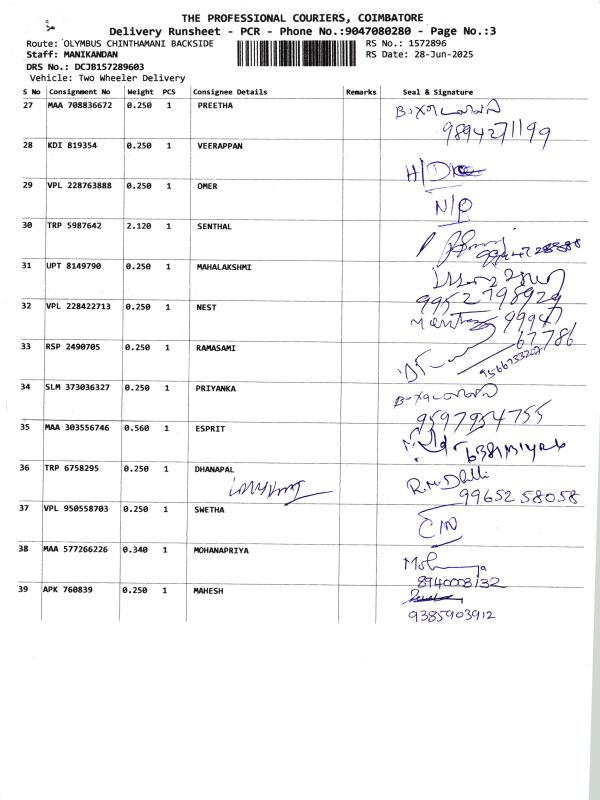 THE PROFESSIONAL COURIERS, COIMBATORE
Delivery Runsheet - PCR - Phone No.:9047080280 - Page No.:3
Route: OLYMBUS CHINTHAMANI BACKSIDE RS No.: 1572896
Staff: MANIKANDAN RS Date: 28-Jun-2025
DRS No.: DCJB157289603
Vehicle: Two Wheeler Delivery
S No Consignment No Weight PCS Consignee Details Remarks Seal & Signature
27 MAA 708836672 0.250 1 PREETHA
9894271199
28 KDI 819354 0.250 1 VEERAPPAN
29 VPL 228763888 0.250 1 OMER
N/P
30 TRP 5987642 2.120 1 SENTHAL
31 UPT 8149790 0.250 1 MAHALAKSHMI
9952798929
32 VPL 228422713 0.250 1 NEST
99947
67786
33 RSP 2490705 0.250 1 RAMASAMI
34 SLM 373036327 0.250 1 PRIYANKA
9597954755
35 MAA 303556746 0.560 1 ESPRIT
36 TRP 6758295 0.250 1 DHANAPAL
99652 58058
37 VPL 950558703 0.250 1 SWETHA
38 MAA 577266226 0.340 1 MOHANAPRIYA
8940008132
39 APK 760839 0.250 1 MAHESH
9385903912